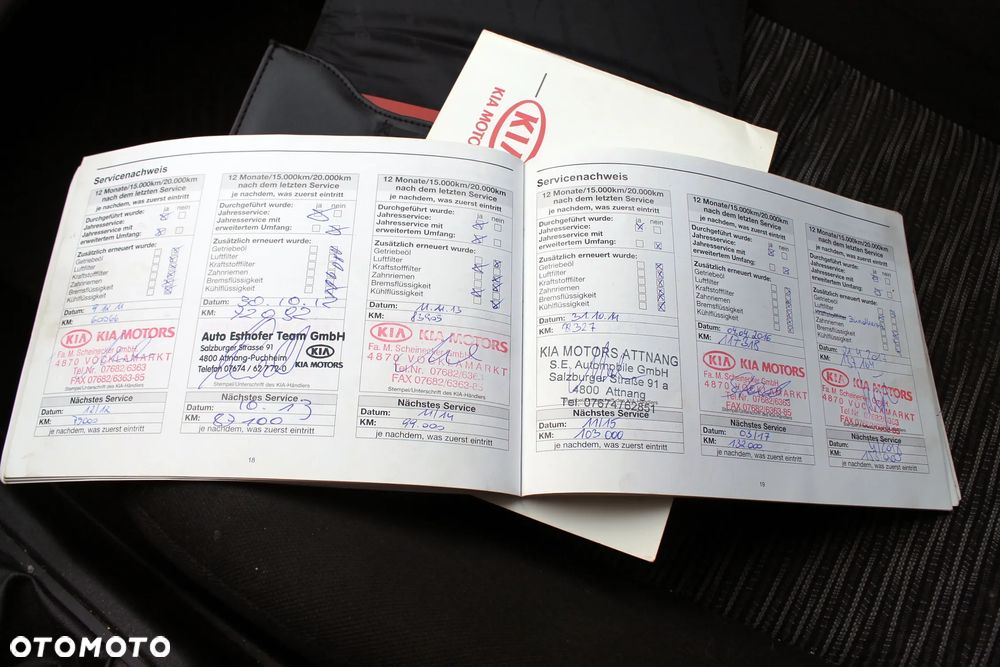 KIA MOTO
KIA
Servicenachweis
12 Monate/15.000km/20.000km
nach dem letzten Service
je nachdem, was zuerst eintritt
Durchgeführt wurde: ja nein
Jahresservice:
Jahresservice mit
erweitertem Umfang:
Zusätzlich erneuert wurde:
Getriebeöl
Luftfilter
Kraftstofffilter
Zahnriemen
Bremsflüssigkeit
Kühlflüssigkeit
Datum: 9.11.11
KM: 60066
KIA KIA MOTORS
Fa. M. Scheinecker GmbH
4870 VÖCKLAMARKT
Tel.Nr. 07682/6363
FAX 07682/6363-85
Stempel/Unterschrift des KIA-Händlers
Nächstes Service
Datum: 12/12
KM: 75000
je nachdem, was zuerst eintritt
12 Monate/15.000km/20.000km
nach dem letzten Service
je nachdem, was zuerst eintritt
Durchgeführt wurde: ja nein
Jahresservice:
Jahresservice mit
erweitertem Umfang:
Zusätzlich erneuert wurde:
Getriebeöl
Luftfilter
Kraftstofffilter
Zahnriemen
Bremsflüssigkeit
Kühlflüssigkeit
Datum: 30.10.12
KM:
Auto Esthofer Team GmbH
Salzburger Strasse 91
4800 Attnang-Puchheim KIA
Telefon 07674 / 62 772-0 KIA MOTORS
Stempel/Unterschrift des KIA-Händlers
Nächstes Service
Datum: 10.13
KM: 87100
je nachdem, was zuerst eintritt
18
12 Monate/15.000km/20.000km
nach dem letzten Service
je nachdem, was zuerst eintritt
Durchgeführt wurde: ja nein
Jahresservice:
Jahresservice mit
erweitertem Umfang:
Zusätzlich erneuert wurde:
Getriebeöl
Luftfilter
Kraftstofffilter
Zahnriemen
Bremsflüssigkeit
Kühlflüssigkeit
Datum: 11.11.13
KM: 83905
KIA KIA MOTORS
Fa. M. Scheinecker GmbH
4870 VÖCKLAMARKT
Tel.Nr. 07682/6363
FAX 07682/6363-85
Stempel/Unterschrift des KIA-Händlers
Nächstes Service
Datum: 11/14
KM: 99.000
je nachdem, was zuerst eintritt
Servicenachweis
12 Monate/15.000km/20.000km
nach dem letzten Service
je nachdem, was zuerst eintritt
Durchgeführt wurde: ja nein
Jahresservice:
Jahresservice mit
erweitertem Umfang:
Zusätzlich erneuert wurde:
Getriebeöl
Luftfilter
Kraftstofffilter
Zahnriemen
Bremsflüssigkeit
Kühlflüssigkeit
Datum:
KM:
KIA MOTORS ATTNANG
S.E. Automobile GmbH
Salzburger Straße 91 a
4800 Attnang
Tel. 07674/62851
Nächstes Service
Datum: 11/15
KM: 105 000
je nachdem, was zuerst eintritt
12 Monate/15.000km/20.000km
nach dem letzten Service
je nachdem, was zuerst eintritt
Durchgeführt wurde: ja nein
Jahresservice:
Jahresservice mit
erweitertem Umfang:
Zusätzlich erneuert wurde:
Getriebeöl
Luftfilter
Kraftstofffilter
Zahnriemen
Bremsflüssigkeit
Kühlflüssigkeit
Datum: 04.04.2016
KM: 117518
KIA KIA MOTORS
Fa. M. Scheinecker GmbH
4870 VÖCKLAMARKT
Tel.Nr. 07682/6363
FAX 07682/6363-85
Nächstes Service
Datum: 03/17
KM: 132000
je nachdem, was zuerst eintritt
19
12 Monate/15.000km/20.000km
nach dem letzten Service
je nachdem, was zuerst eintritt
Durchgeführt wurde: ja nein
Jahresservice:
Jahresservice mit
erweitertem Umfang:
Zusätzlich erneuert wurde:
Getriebeöl
Luftfilter
Zahnriemen
Bremsflüssigkeit
Kühlflüssigkeit
Datum:
KM:
KIA KIA MOTORS
Fa. M. Scheinecker GmbH
4870 VÖCKLAMARKT
Nächstes Service
Datum:
KM:
je nachdem, was zuerst eintritt
OTOMOTO